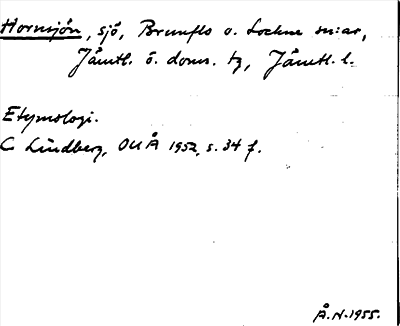 Hornsjön, sjö, Brunflo o. Lockne sn:ar,
Jämtl. ö. doms. tg, Jämtl. l.
Etymologi.
C Lindberg, OUÅ 1952, s. 34 f.
Å.N. 1955.